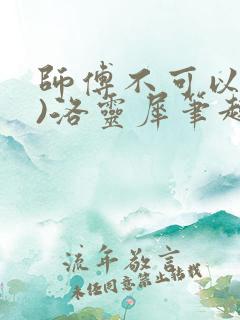 師傅不可以
)洛靈犀筆趣
流年敬言
未经同意禁止转载